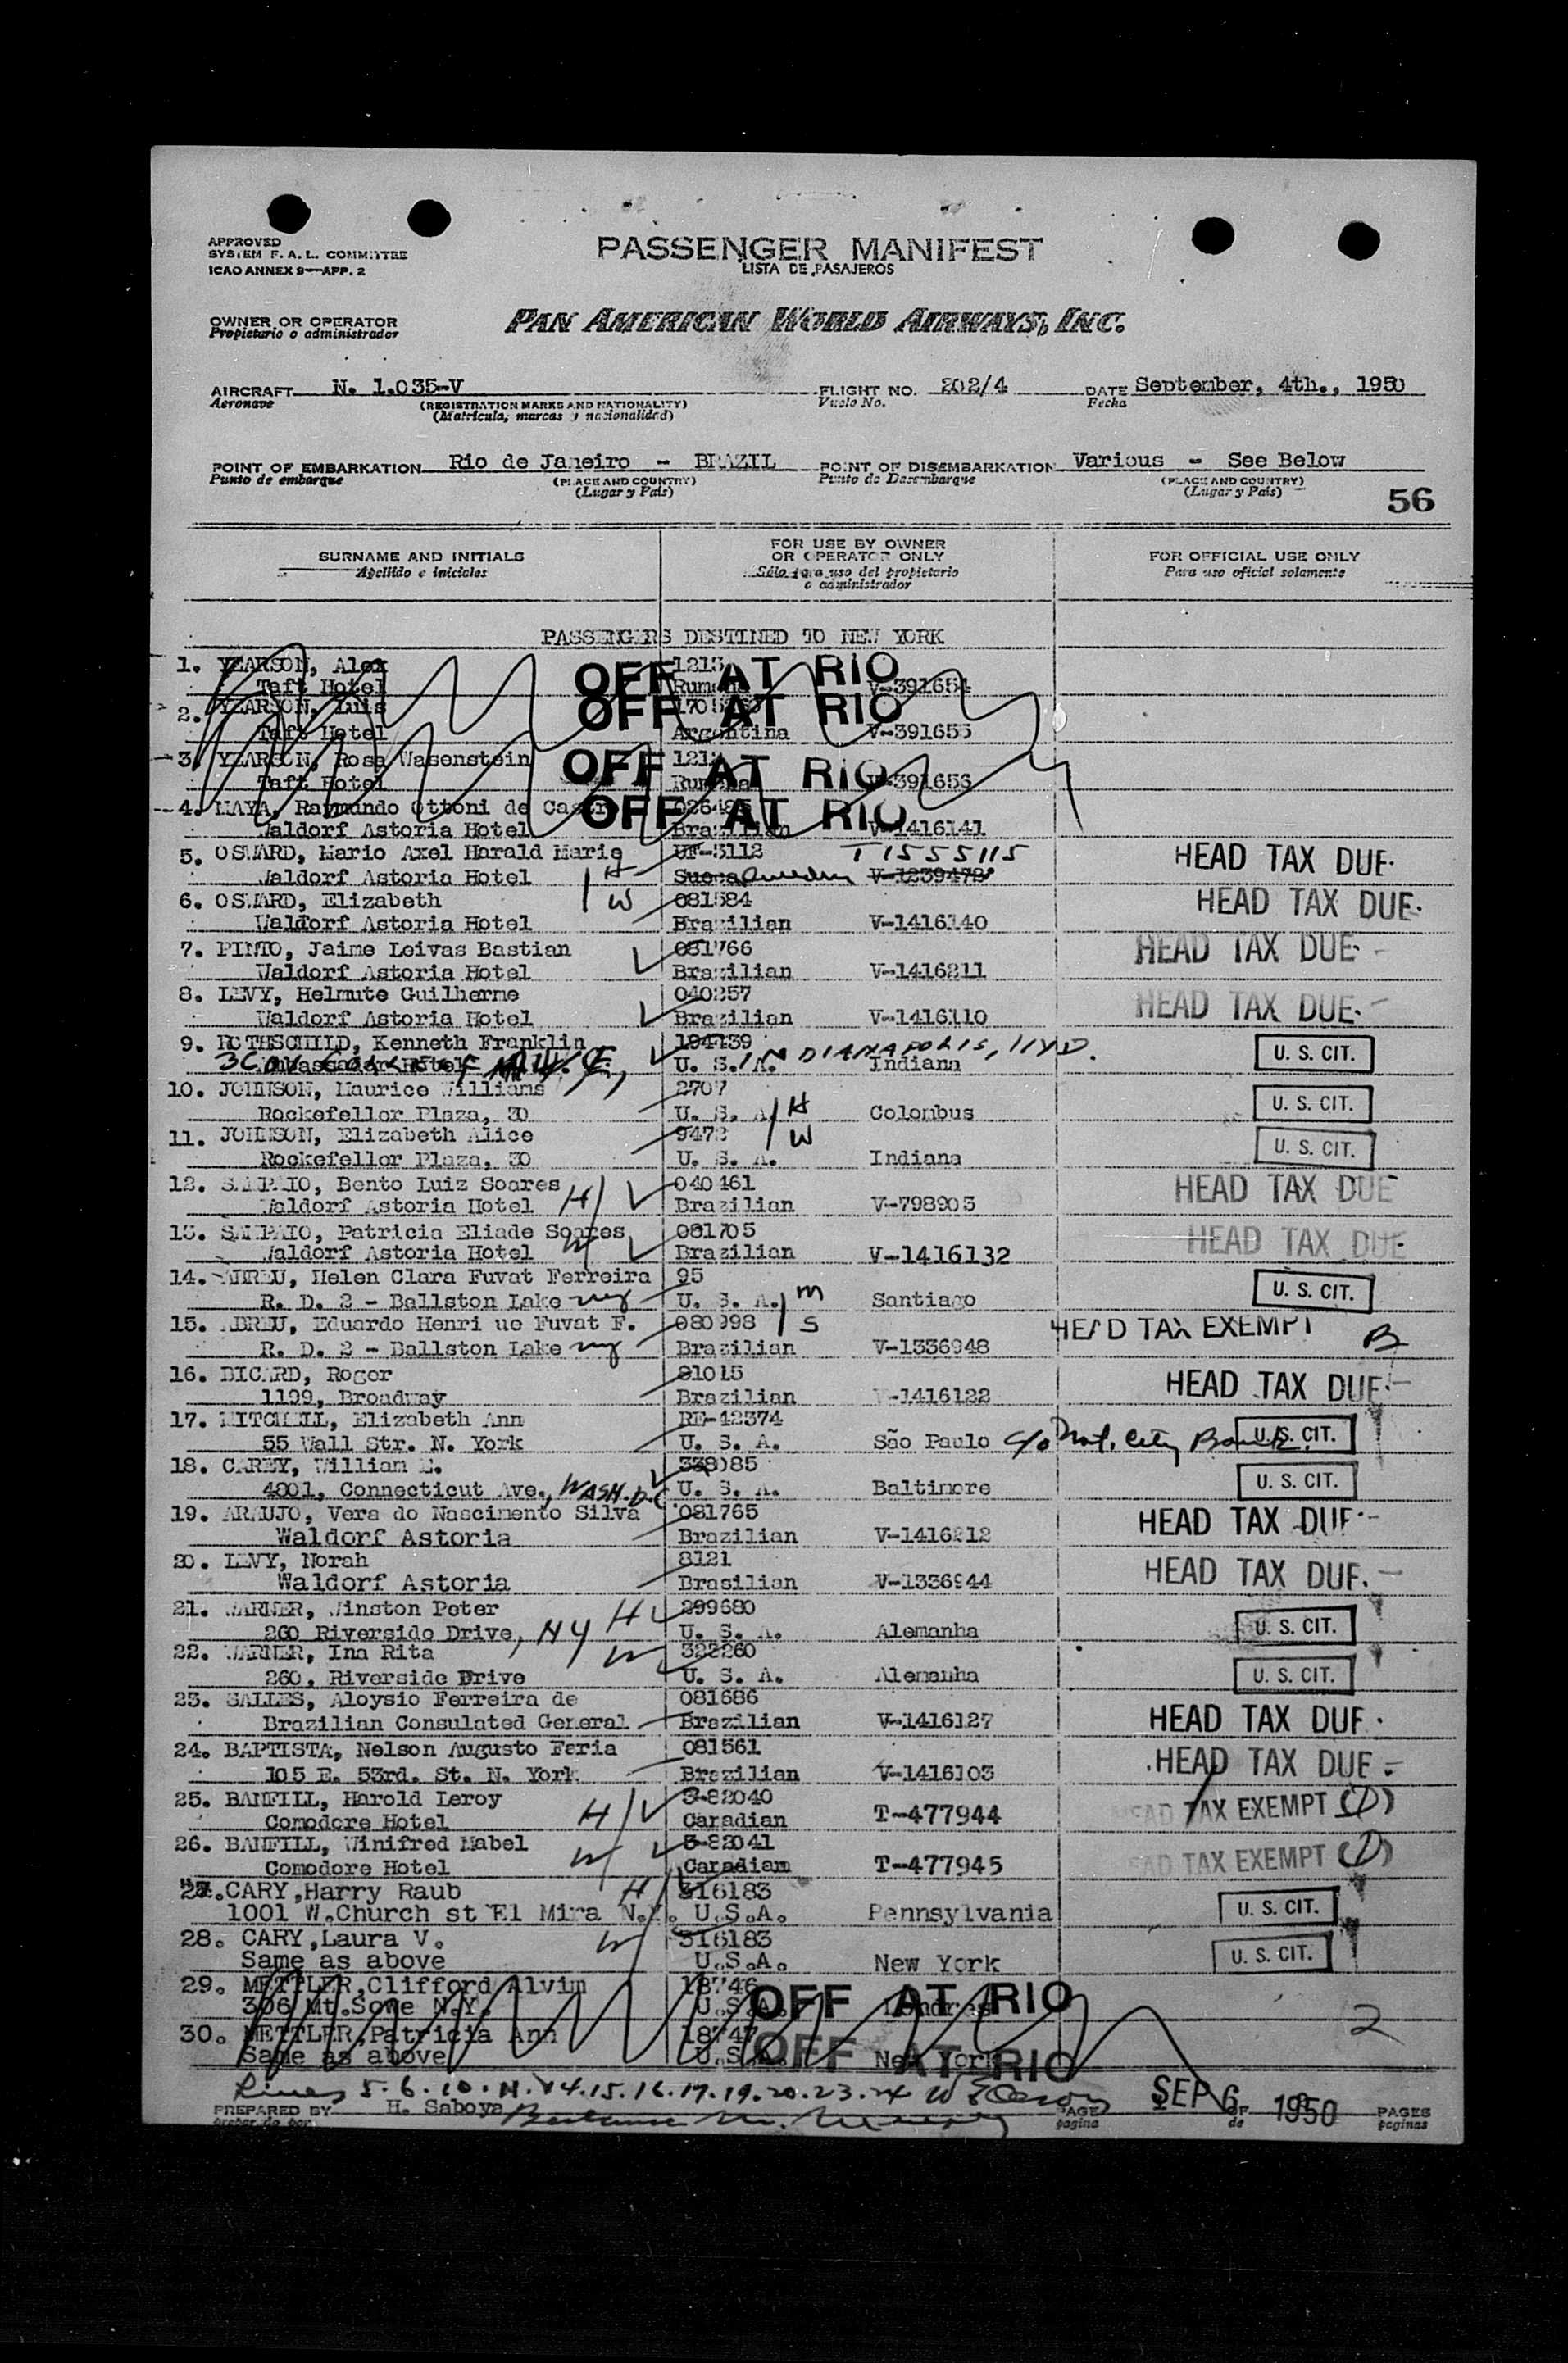 APPROVED
SYSTEM F. A. L. COMMITTEE
ICAO ANNEX 9—APP. 2
PASSENGER MANIFEST
LISTA DE PASAJEROS
OWNER OR OPERATOR
Propietario o administrador
PAN AMERICAN WORLD AIRWAYS, INC.
AIRCRAFT N. 1.035-V FLIGHT NO. 202/4 DATE September, 4th., 1950
Aeronave (REGISTRATION MARKS AND NATIONALITY) Vuelo No. Fecha
(Matrícula, marcas y nacionalidad)
POINT OF EMBARKATION Rio de Janeiro - BRAZIL POINT OF DISEMBARKATION Various - See Below
Punto de embarque (PLACE AND COUNTRY) Punto de Desembarque (PLACE AND COUNTRY)
(Lugar y País) (Lugar y País)
56
SURNAME AND INITIALS FOR USE BY OWNER OR OPERATOR ONLY FOR OFFICIAL USE ONLY
Apellido e iniciales Sólo para uso del propietario o administrador Para uso oficial solamente
PASSENGERS DESTINED TO NEW YORK
1. YEARSON, Alex OFF AT RIO
Taft Hotel V-391654
2. YEARSON, Luis OFF AT RIO
Taft Hotel Argentina V-391655
3. YEARSON, Rosa Wasenstein OFF AT RIO
Taft Hotel V-391656
4. MAYA, Raymundo Ottoni de Castro OFF AT RIO
Waldorf Astoria Hotel Brazilian V-1416141
5. OSWARD, Mario Axel Harald Marie UF-3112 T 1555115 HEAD TAX DUE
Waldorf Astoria Hotel H Sueca Sweden V-1239478
6. OSWARD, Elizabeth W 081584 HEAD TAX DUE
Waldorf Astoria Hotel Brazilian V-1416140
7. PINTO, Jaime Leivas Bastian 081766 HEAD TAX DUE
Waldorf Astoria Hotel Brazilian V-1416211
8. LEVY, Helmute Guilherme 040257 HEAD TAX DUE
Waldorf Astoria Hotel Brazilian V-1416110
9. ROTHSCHILD, Kenneth Franklin 194139 INDIANAPOLIS, IND. U. S. CIT.
Ambassador Hotel U. S. A. Indiana
10. JOHNSON, Maurice Williams 2707 U. S. CIT.
Rockefellor Plaza, 30 U. S. A. H Colombus
11. JOHNSON, Elizabeth Alice 9472 W U. S. CIT.
Rockefellor Plaza, 30 U. S. A. Indiana
12. SAMPAIO, Bento Luiz Soares 040461 HEAD TAX DUE
Waldorf Astoria Hotel H Brazilian V-798903
13. SAMPAIO, Patricia Eliade Soares 081705 HEAD TAX DUE
Waldorf Astoria Hotel W Brazilian V-1416132
14. ABREU, Helen Clara Fuvat Ferreira 95 U. S. CIT.
R. D. 2 - Ballston Lake NY U. S. A. M Santiago
15. ABREU, Eduardo Henri ue Fuvat F. 080998 S HEAD TAX EXEMPT B
R. D. 2 - Ballston Lake NY Brazilian V-1336948
16. BICARD, Roger 81015 HEAD TAX DUE
1199, Broadway Brazilian V-1416122
17. MITCHELL, Elizabeth Ann RE-42374 U. S. CIT.
55 Wall Str. N. York U. S. A. São Paulo c/o Nat. City Bank
18. CAREY, William E. 338085 U. S. CIT.
4801, Connecticut Ave., WASH. D.C. U. S. A. Baltimore
19. ARAUJO, Vera do Nascimento Silva 081765 HEAD TAX DUE
Waldorf Astoria Brazilian V-1416212
20. LEVY, Norah 8121 HEAD TAX DUE
Waldorf Astoria Brasilian V-1336944
21. WARNER, Winston Peter H 299680 U. S. CIT.
260 Riverside Drive, NY U. S. A. Alemanha
22. WARNER, Ina Rita W 322260 U. S. CIT.
260, Riverside Drive U. S. A. Alemanha
23. SALLES, Aloysio Ferreira de 081686 HEAD TAX DUE
Brazilian Consulated General Brazilian V-1416127
24. BAPTISTA, Nelson Augusto Faria 081561 HEAD TAX DUE
105 E. 53rd. St. N. York Brazilian V-1416103
25. BANFILL, Harold Leroy 3-82040 HEAD TAX EXEMPT (D)
Comodore Hotel H Canadian T-477944
26. BANFILL, Winifred Mabel 3-82041 HEAD TAX EXEMPT (D)
Comodore Hotel W Canadian T-477945
27. CARY,Harry Raub H 316183 U. S. CIT.
1001 W.Church st El Mira N.Y. U.S.A. Pennsylvania
28. CARY,Laura V. W 316183 U. S. CIT.
Same as above U.S.A. New York
29. METTLER,Clifford Alvim 18746 OFF AT RIO
306 Mt.Sove N.Y. U.S.A. Londres
2
30. METTLER,Patricia Ann 18747 OFF AT RIO
Same as above U.S.A. New York
Lines 5.6.10.11.14.15.16.17.19.20.23.24
PREPARED BY H. Saboya PAGE OF PAGES
SEP 6 1950
pagina de paginas